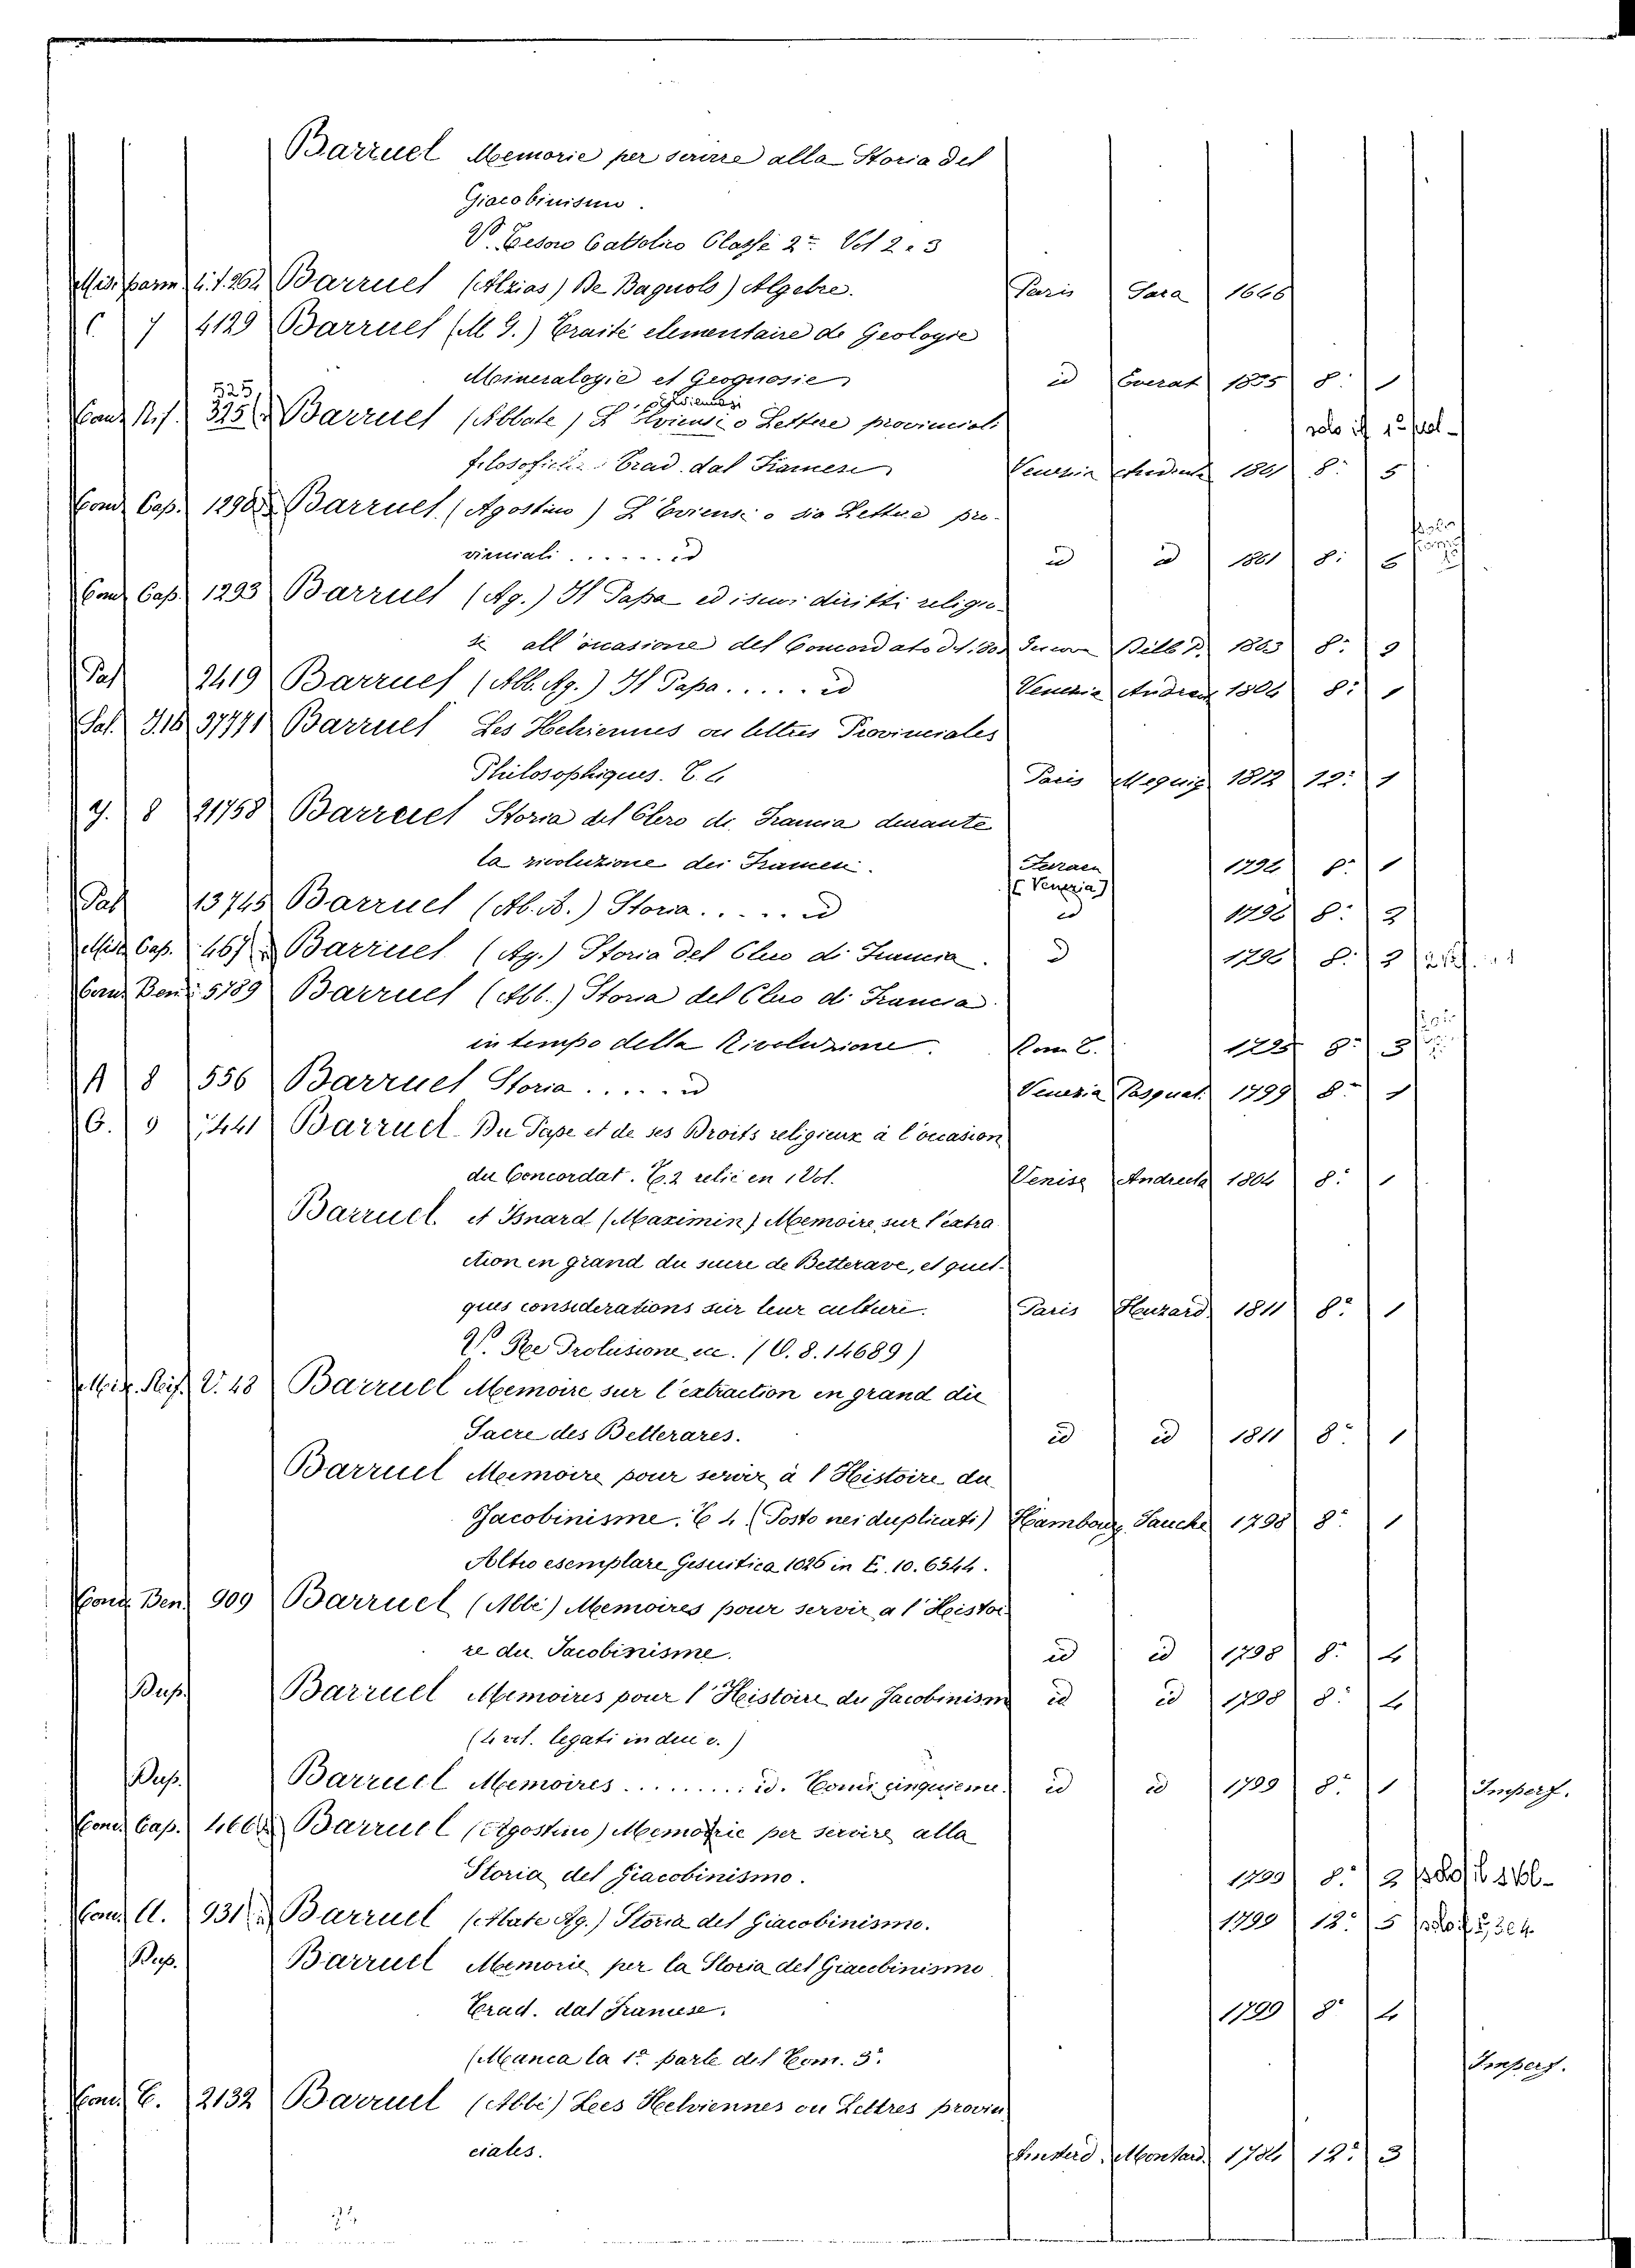 Barruel Memorie per servire alla Storia del
Giacobinismo.
V. Tesoro Cattolico Classe 2ª Vol 2. 3
Barruel (Alzias) De Bagnols) Algebre. Paris Sara 1646
C 7 4129 Barruel (M G.) Traité elementaire de Geologie
Mineralogie et Geognosie id Everat 1835 8º 1
525
Conv. Rif. 325 Barruel (Abbate) L' Elviensi o Lettere provinciali
solo il 1º vol
filosofiche Trad. dal Francese Venezia 1801 8º 5
Conv Cap. 1290 Barruel (Agostino) L' Elviensi o sia Lettere pro-
vinciali ...... id id id 1801 8º
Conv Cap. 1293 Barruel (Ag.) Il Papa ed i suoi diritti religio-
si all' occasione del Concordato 1803 8º
Pal 2419 Barruel (Abb. Ag.) Il Papa ..... id Venezia Andreol 1804 8º 1
Sal. J.16 37771 Barruel Les Helviennes ou lettres Provinciales
Philosophiques. Paris Mequig 1812 12º 1
Y. 8 21758 Barruel Storia del Clero di Francia durante
la rivoluzione dei Francesi. Ferrara 1794 8º 1
(Venezia)
Pal 13745 Barruel (Ab. A.) Storia ..... id id 8º 2
Misc Cap. 467 Barruel (Ag.) Storia del Clero di Francia. id 8º
Conv Ben. 5789 Barruel (Abb.) Storia del Clero di Francia
in tempo della Rivoluzione. Rom 8º 3
A 8 556 Barruel Storia ..... id Venezia Pasqual. 1799 8º 1
C. 9 Barruel Du Pape et de ses Droits religieux à l'occasion
du Concordat. T. 2 relié en 1 Vol. Venise Andreola 1804 8º 1
Barruel. et Isnard (Maximin) Memoire, sur l'extra
ction en grand du sucre de Betterave, et quel-
ques considerations sur leur culture. Paris Huzard 1811 8º 1
V. Re Prolusione ec. (O. 8. 14689)
Misc. Rif. V. 48 Barruel Memoire sur l'extraction en grand du
Sacre des Betteraves. id id 1811 8º 1
Barruel Memoire pour servir à l'Histoire du
Jacobinisme. T 4. (Posto nei duplicati) Hambourg Fauche 1798 8º 1
Altro esemplare Gesuitica 1026 in E. 10. 6544.
Conv. Ben. 909 Barruel (Abbé) Memoires pour servir a l'Histoi
re du Jacobinisme. id id 1798 8º 4
Dup. Barruel Memoires pour l'Histoire du Jacobinism id id 1798 8º 4
(4 vol. legati in due v.)
Dup. Barruel Memoires ........ id. Tome cinquieme. id id 1799 8º 1 Imperf.
Conv Cap. Barruel (Agostino) Memorie per servire alla
Storia del Giacobinismo. 1799 8º 2
Conv A. 931 Barruel (Abate Ag.) Storia del Giacobinismo. 1799 12º 5
Dup. Barruel Memorie per la Storia del Giacobinismo
Trad. dal Francese. 1799 8º 4
(Manca la 1ª parte del Tom. 3º. Imperf.
Conv C. 2132 Barruel (Abbé) Lees Helviennes ou Lettres provin
ciales. Amsterd. Moutard 1784 12º 3